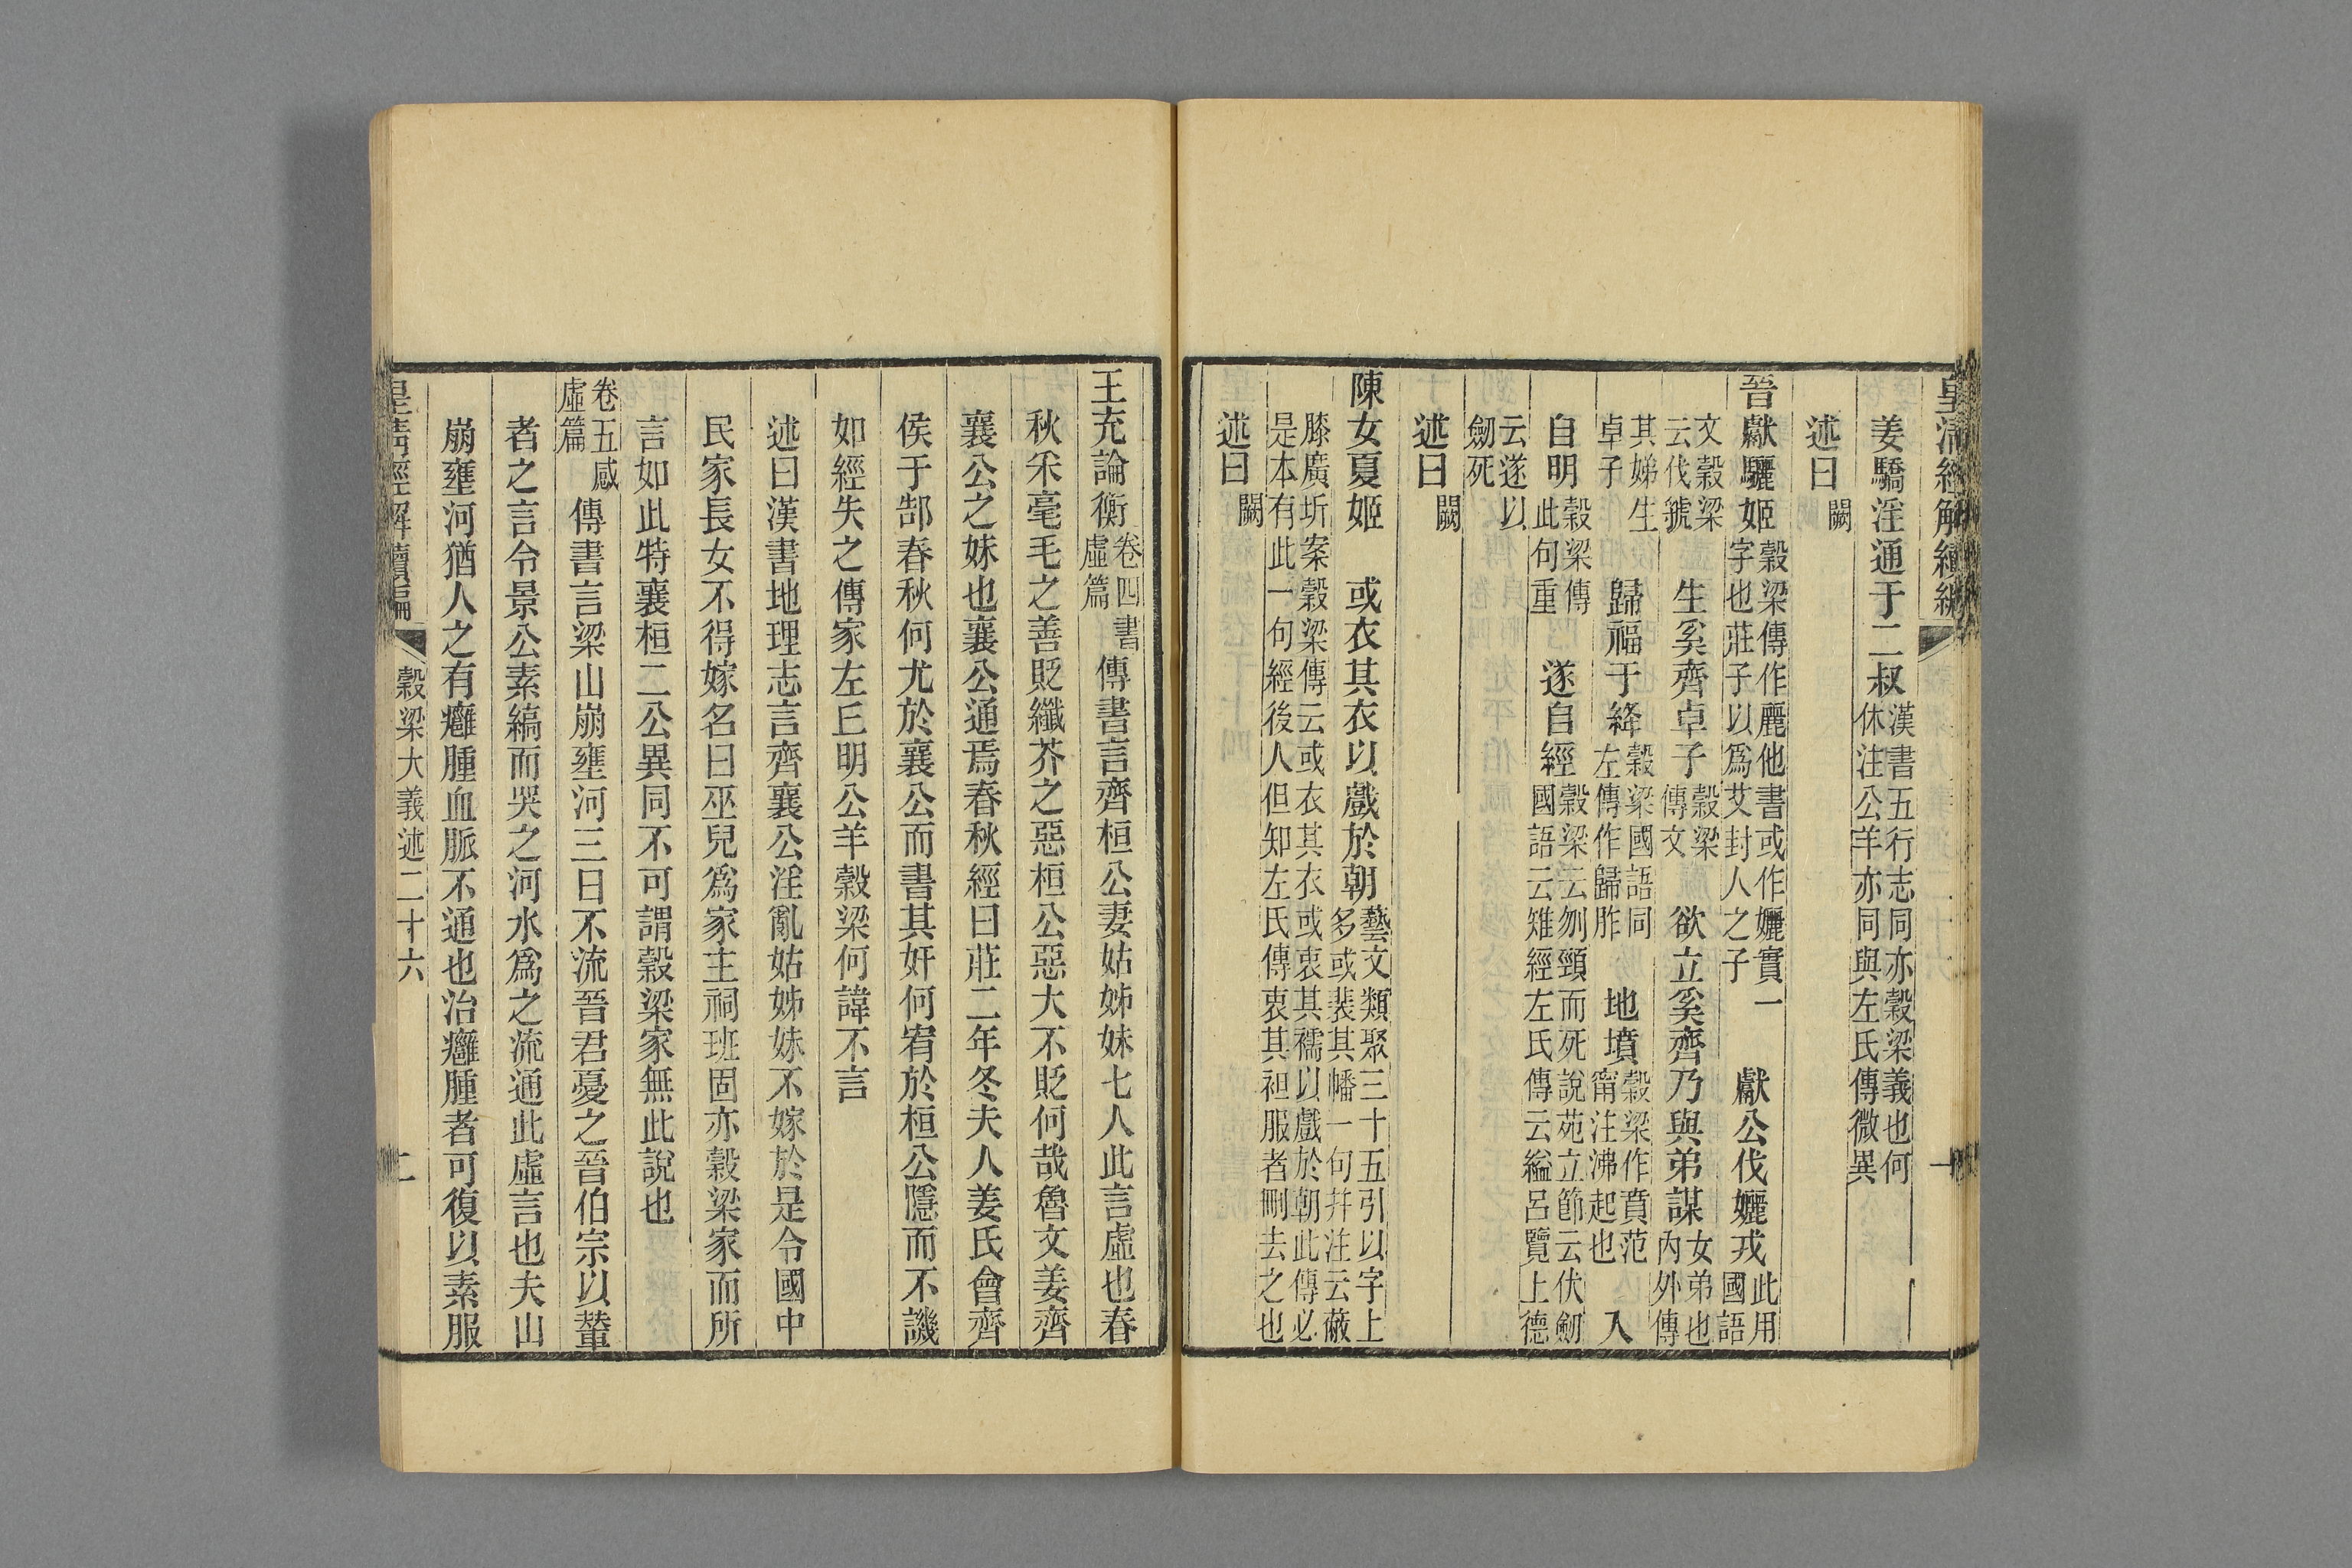 皇清經解續編
姜驕淫通于二叔漢書五行志同亦穀梁義也何休注公羊亦同與左氏傳微異
述曰闕
晉獻驪姬穀梁傳作麗他書或作孋實一字也莊子以爲艾封人之子獻公伐孋戎此用國語
文穀梁云伐虢生奚齊卓子穀梁傳文欲立奚齊乃與弟謀女弟也內外傳
其娣生卓子歸福于絳穀梁國語同左傳作歸胙地墳穀梁作賁范甯注沸起也入
自明穀梁傳此句重遂自經穀梁云刎頸而死說苑立節云伏劒國語云雉經左氏傳云縊呂覽上德
云遂以劒死
述曰闕
陳女夏姬或衣其衣以戲於朝藝文類聚三十五引以字上多或裴其幡一句幷注云蔽
膝廣圻案穀梁傳云或衣其衣或衷其襦以戲於朝此傳必是本有此一句經後人但知左氏傳衷其衵服者刪去之也
述曰闕
王充論衡卷四書虛篇傳書言齊桓公妻姑姊妹七人此言虛也春
秋采毫毛之善貶纖芥之惡桓公惡大不貶何哉魯文姜齊
襄公之妹也襄公通焉春秋經曰莊二年冬夫人姜氏會齊
侯于郜春秋何尤於襄公而書其奸何宥於桓公隱而不譏
如經失之傳家左丘明公羊穀梁何諱不言
述曰漢書地理志言齊襄公淫亂姑姊妹不嫁於是令國中
民家長女不得嫁名曰巫兒爲家主祠班固亦穀梁家而所
言如此特襄桓二公異同不可謂穀梁家無此說也
卷五感虛篇傳書言梁山崩壅河三日不流晉君憂之晉伯宗以輦
者之言令景公素縞而哭之河水爲之流通此虛言也夫山
崩壅河猶人之有癰腫血脈不通也治癰腫者可復以素服
皇清經解續編 穀梁大義述二十六 二